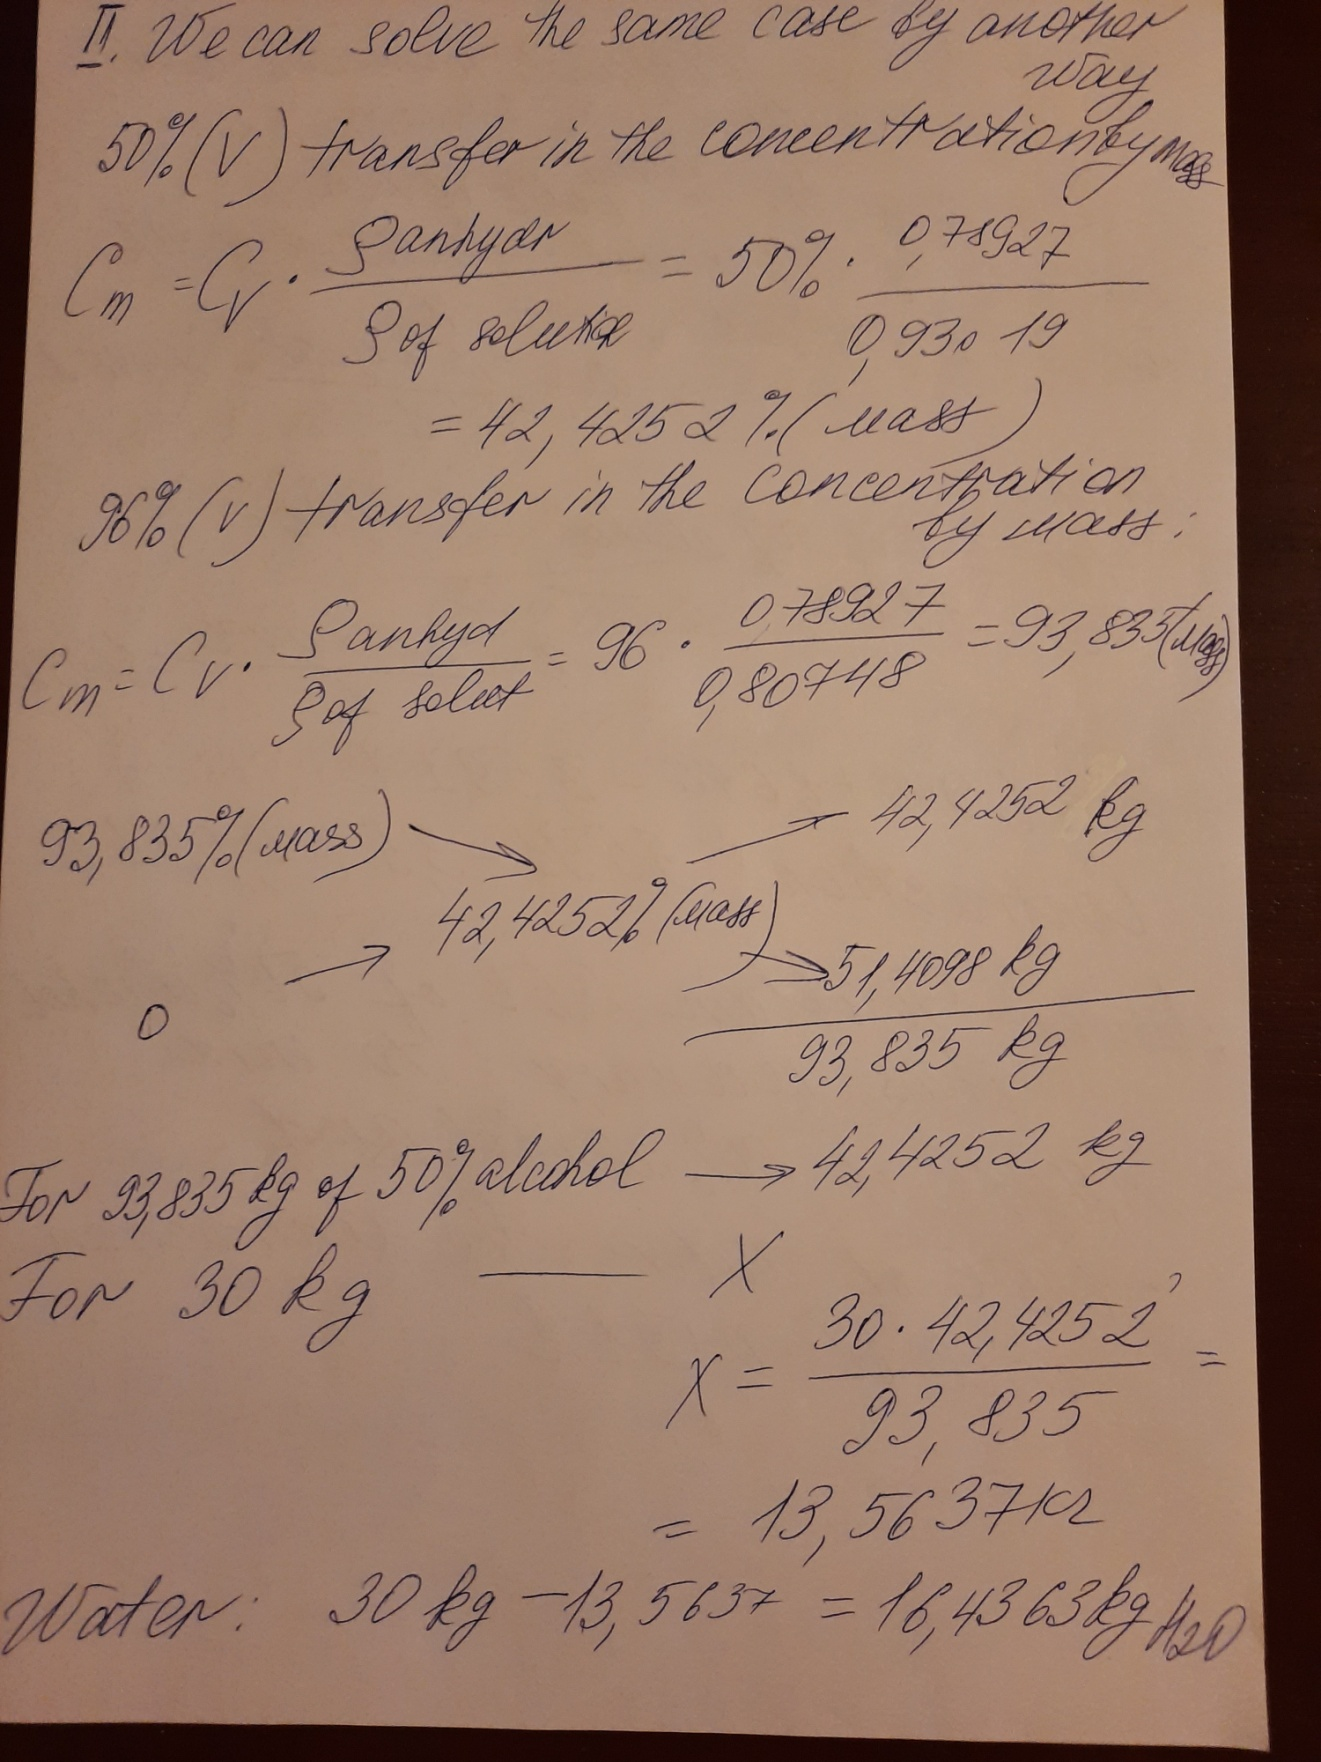 II. We can solve the same case by another
way
50% (V) transfer in the concentration by mass
Cm = Cv · ρanhydr / ρ of solution = 50% · 0,78927 / 0,93019
= 42,4252 % (mass)
96% (V) transfer in the concentration
by mass:
Cm = Cv · ρanhyd / ρ of solut = 96 · 0,78927 / 0,80748 = 93,835 (mass)
93,835% (mass) → 42,4252 kg
42,4252% (mass)
→ 51,4098 kg
0
93,835 kg
For 93,835 kg of 50% alcohol → 42,4252 kg
For 30 kg — X
X = 30 · 42,4252 / 93,835 =
= 13,5637 кг
Water: 30 kg – 13,5637 = 16,4363 kg H2O